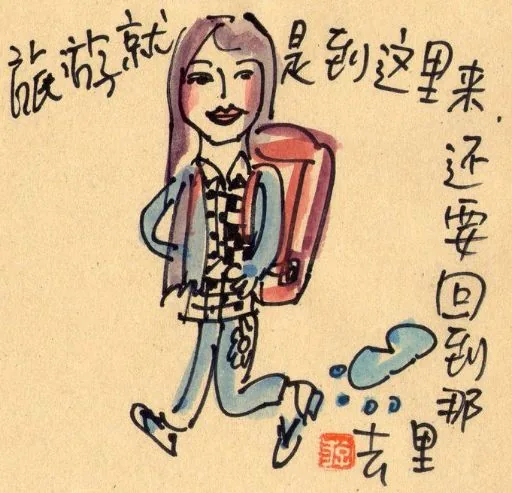 旅游就是到这里来,
还要回到那
里去